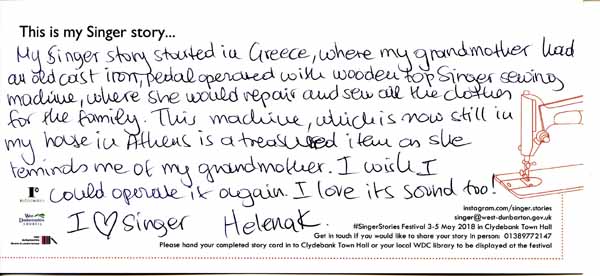 This is my Singer story...
My Singer story started in Greece, where my grandmother had
an old cast iron, pedal operated with wooden top Singer sewing
machine, where she would repair and sew all the clothes
for the family. This machine, which is now still in
my house in Athens is a treasured item as she
reminds me of my grandmother. I wish I
could operate it again. I love its sound too!
I ♡ Singer Helena K.
instagram.com/singer.stories
singer@west-dunbarton.gov.uk
#SingerStories Festival 3-5 May 2018 in Clydebank Town Hall
Get in touch if you would like to share your story in person: 01389772147
Please hand your completed story card in to Clydebank Town Hall or your local WDC library to be displayed at the festival